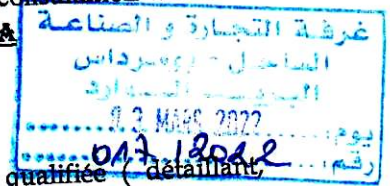 غرفة التجارة و الصناعة
الساحل - بومرداس
البريد الوارد
يوم: 23 MARS 2022
رقم: 017/2022
qualifiée ( détaillant,